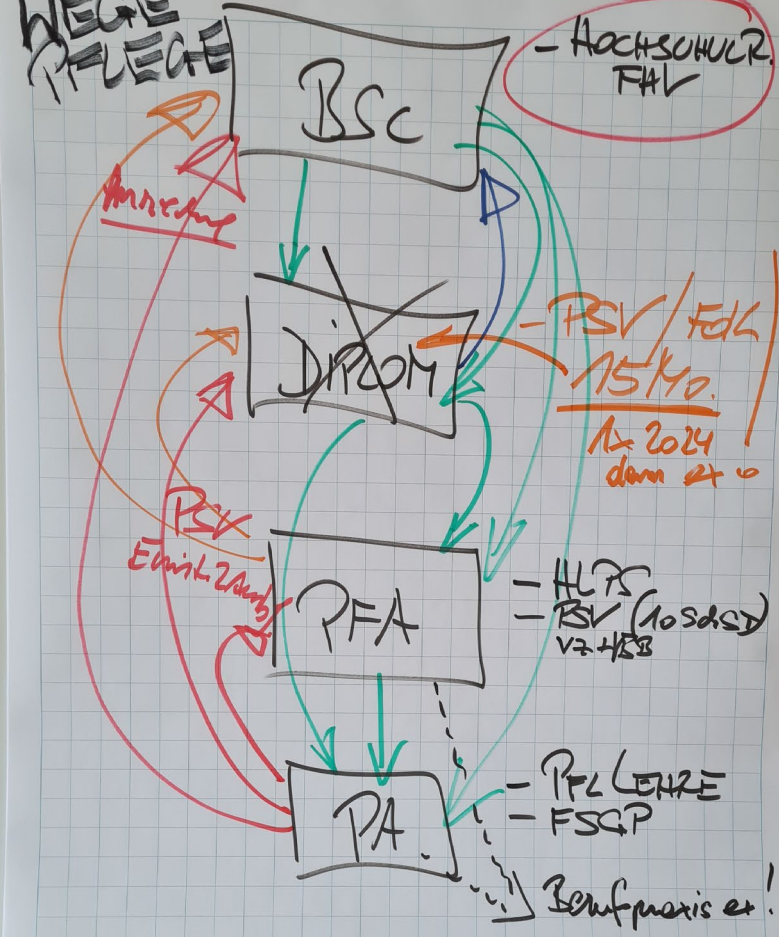 WEGE
PFLEGE
BSc
- HOCHSCHULR.
FHV
Anrechng
DIPLOM
- PSV / FdL
15 Mo.
1x 2024
dann ex
PSV
PFA
- HLPS
- PSV (10 SchSD)
VZ + BB
PA
- PFL LEHRE
- FSGP
Berufpraxis ex!